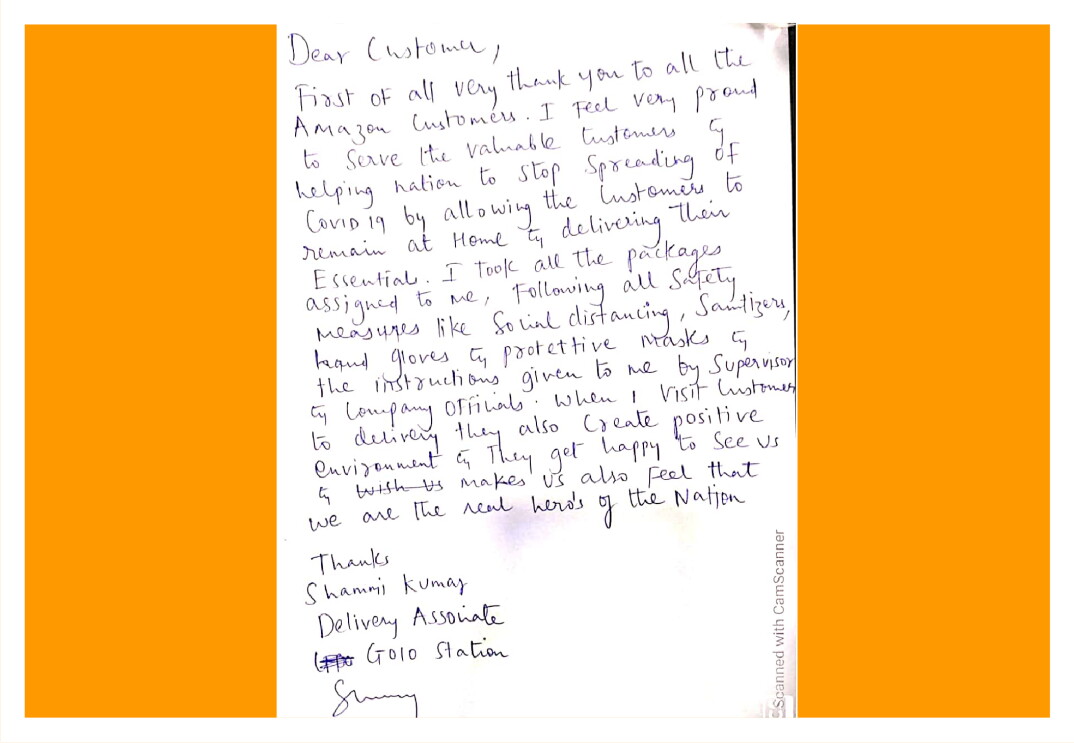 Dear Customer,
First of all very thank you to all the
Amazon Customers. I Feel very proud
to Serve the valuable Customers &
helping nation to stop Spreading of
Covid 19 by allowing the Customers to
remain at Home & delivering Their
Essential. I Took all the packages
assigned to me, Following all Safety
measures like Social distancing, Sanitizers,
hand gloves & protettive Masks &
the instructions given to me by Supervisor
& Company Officials. When I Visit Customer
to delivery they also Create positive
Environment & They get happy to See us
& wish us makes us also Feel that
we are the real hero's of the Nation
Thanks
Shammi Kumar
Delivery Assosiate
GOIO Station
Scanned with CamScanner